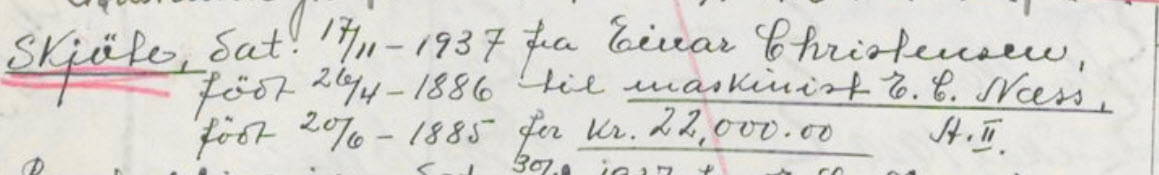 Skjöte, dat. 17/11 - 1937 fra Einar Christensen,
född 26/4 - 1886 til maskinist E. C. Næss,
född 20/6 - 1885 for Kr. 22,000.00 H. II.